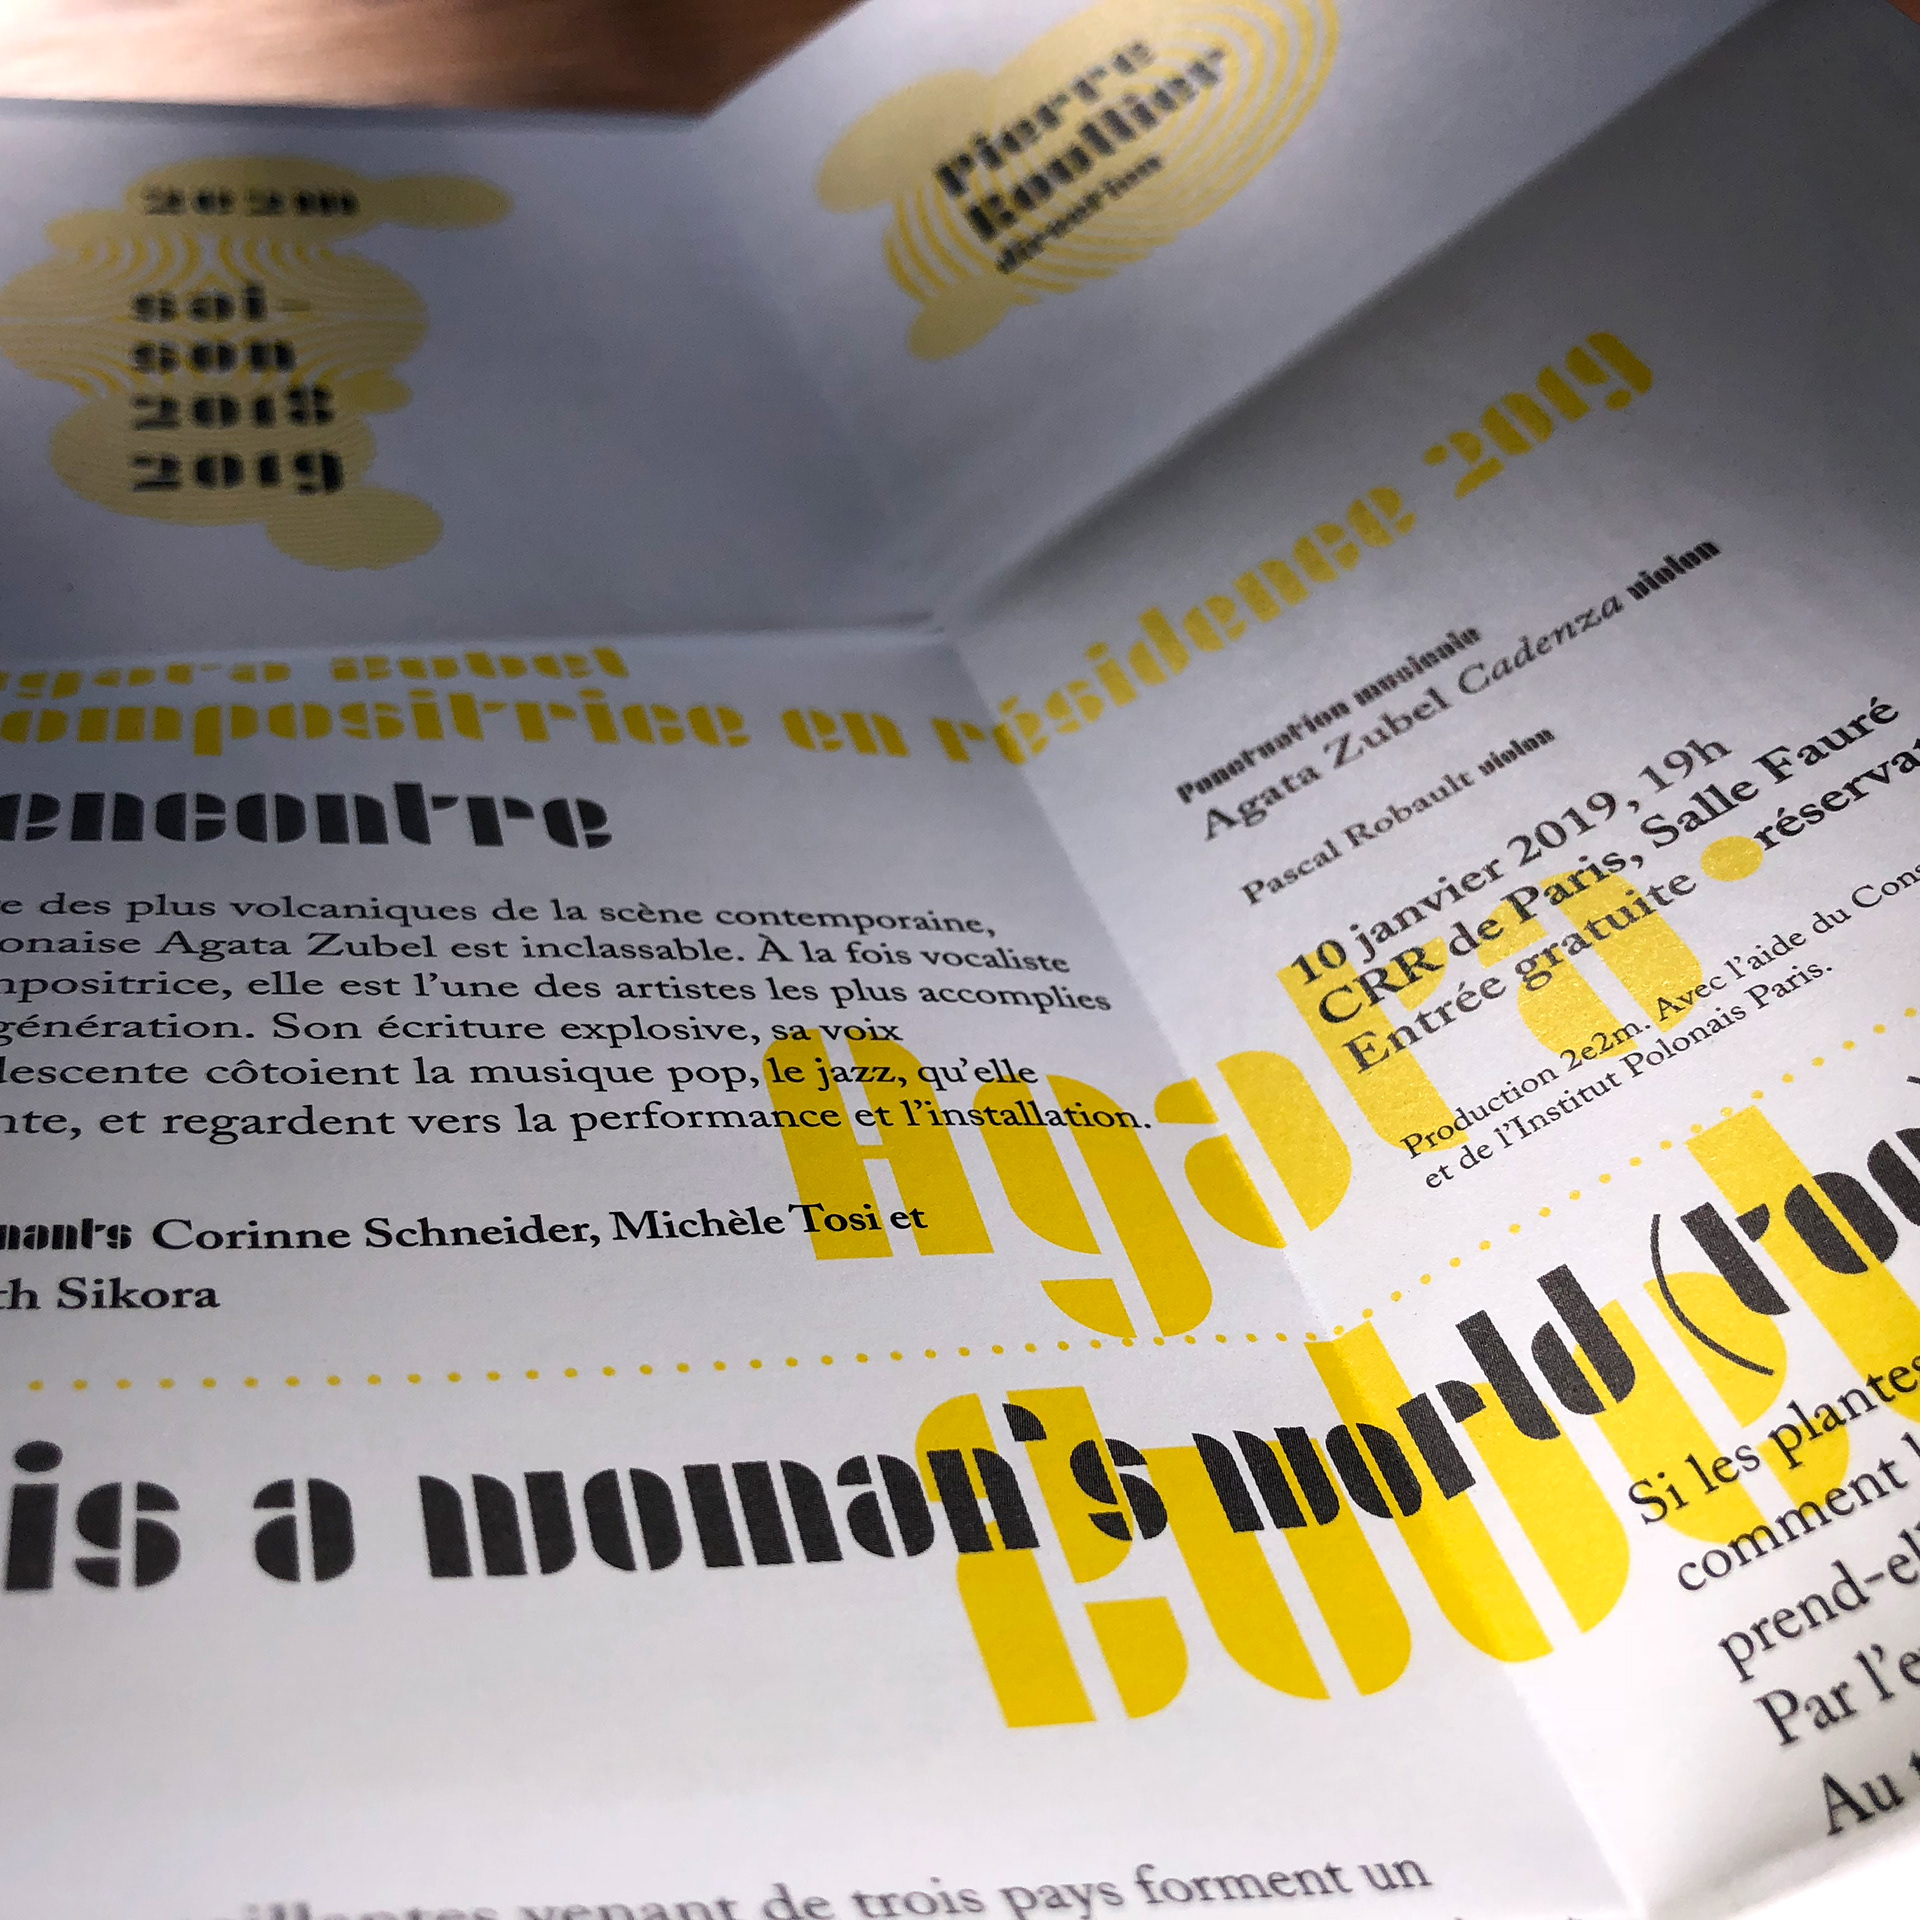 2e2m
sai-
son
2018
2019
Pierre
Roullier
direction
gata Zubel
ompositrice en résidence 2019
encontre
e des plus volcaniques de la scène contemporaine,
onaise Agata Zubel est inclassable. À la fois vocaliste
mpositrice, elle est l'une des artistes les plus accomplies
génération. Son écriture explosive, sa voix
lescente côtoient la musique pop, le jazz, qu'elle
nte, et regardent vers la performance et l'installation.
nants Corinne Schneider, Michèle Tosi et
th Sikora
Ponctuation musicale
Agata Zubel Cadenza violon
Pascal Robault violon
10 janvier 2019, 19h
CRR de Paris, Salle Fauré
Entrée gratuite • réservat
Production 2e2m. Avec l'aide du Cons
et de l'Institut Polonais Paris.
Agata
Zubel
is a woman's world (tog
Si les plantes
comment l
prend-el
Par l'e
Au
illantes venant de trois pays forment un